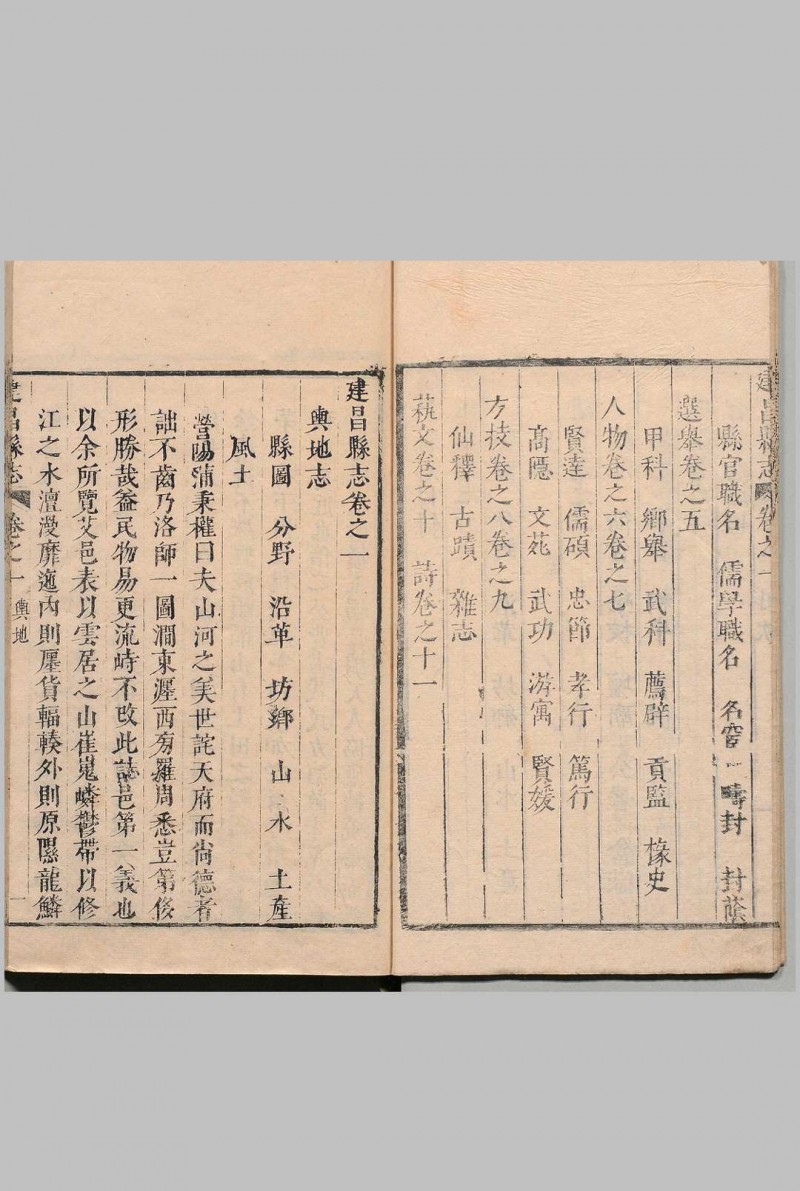 建昌縣志 卷之一
縣官職名 儒學職名 名宦 疇封 封蔭
選舉卷之五
甲科 鄉舉 武科 薦辟 貢監 椽史
人物卷之六卷之七
賢達 儒碩 忠節 孝行 篤行
高隱 文苑 武功 游寓 賢媛
方技卷之八卷之九
仙釋 古蹟 雜志
藝文卷之十 詩卷之十一
建昌縣志卷之一
輿地志
縣圖 分野 沿革 坊鄉 山水 土產
風土
營陽蒲秉權曰夫山河之美世詫天府而尚德者
詘不齒乃洛師一圖澗東瀍西旁羅周悉豈第後
形勝哉葢民物易更流峙不改此誌邑第一義也
以余所覽艾邑表以雲居之山崔嵬嶙鬱帶以修
江之水澶漫靡迤內則廛貨輻輳外則原隰龍鱗
建昌縣志 卷之一 輿地 一